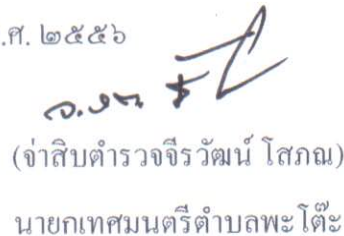 .ศ. ๒๕๕๖
(จ่าสิบตำรวจจีรวัฒน์ โสภณ)
นายกเทศมนตรีตำบลพะโต๊ะ